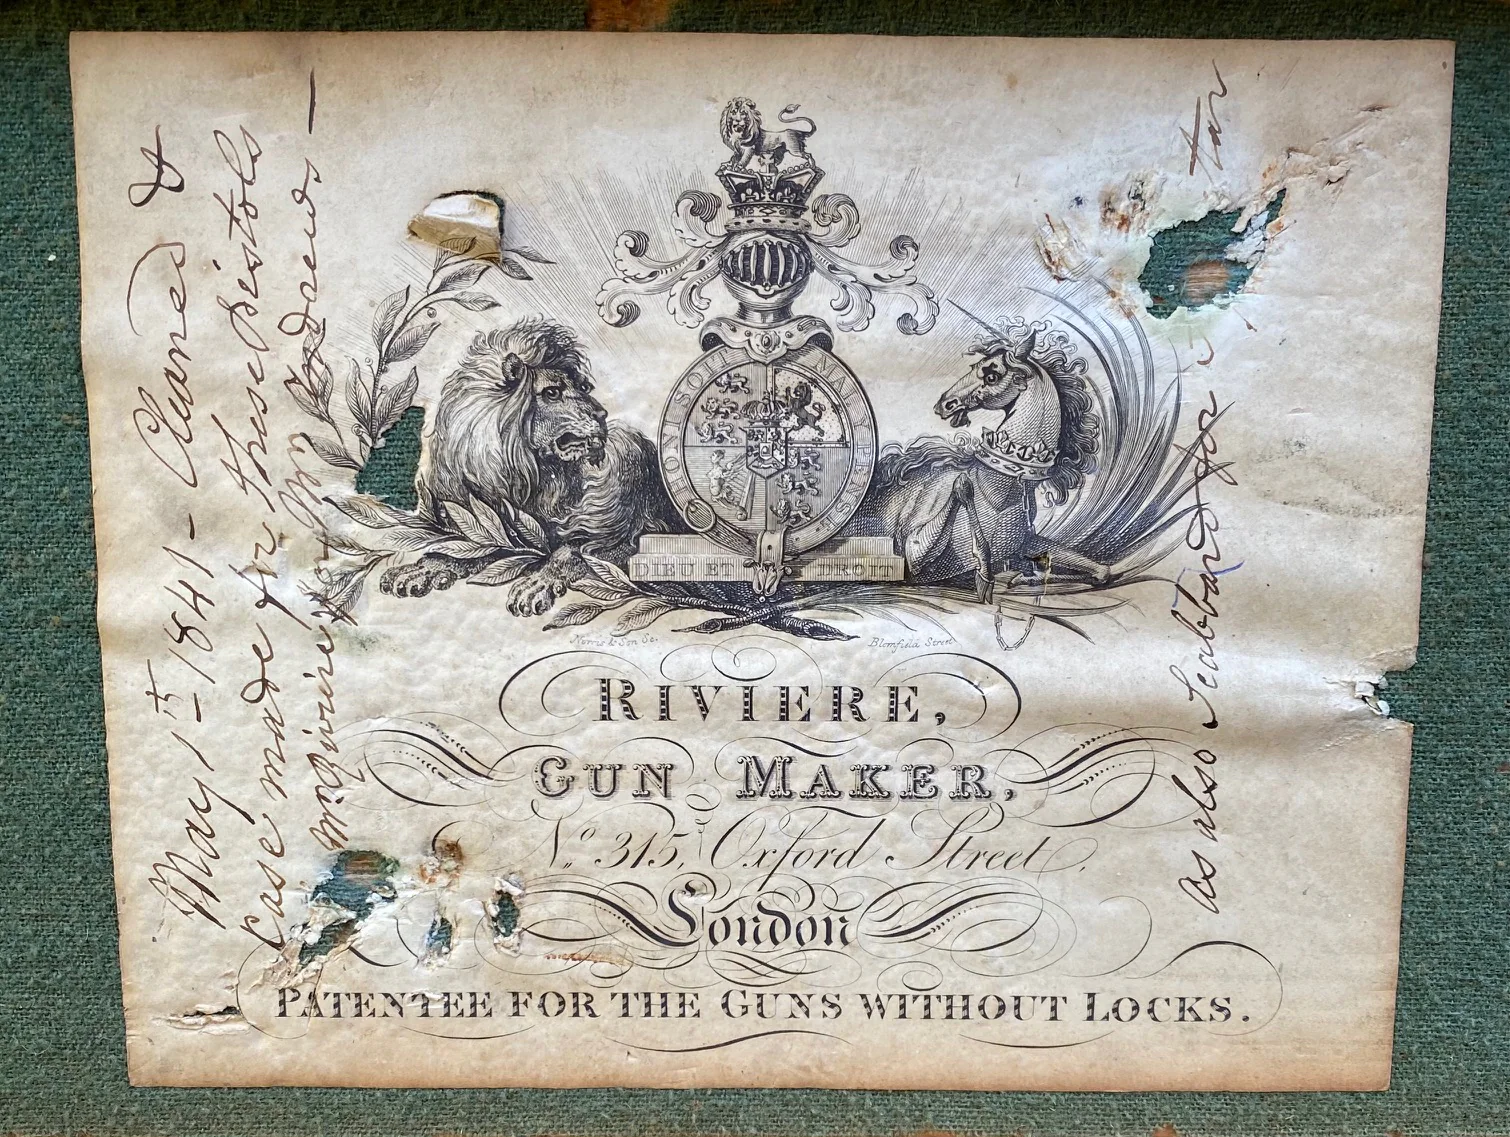 HONI SOIT QUI MAL Y PENSE
DIEU ET DROIT
Norris & Son Sc. Blomfield Street
RIVIERE,
GUN MAKER,
No. 315, Oxford Street,
London
PATENTEE FOR THE GUNS WITHOUT LOCKS.
May 15 1841 - Cleaned &
Case made for these Pistols
Mr Riviere for Mr Andrews —
as also Scabbard for